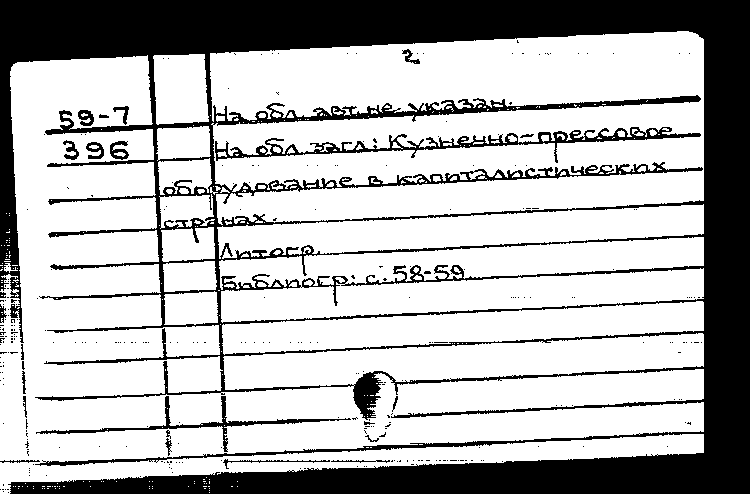 2
59-7 На обл. авт. не указан.
396 На обл. загл.: Кузнечно-прессовое
оборудование в капиталистических
странах.
Литогр.
Библиогр: с. 58-59